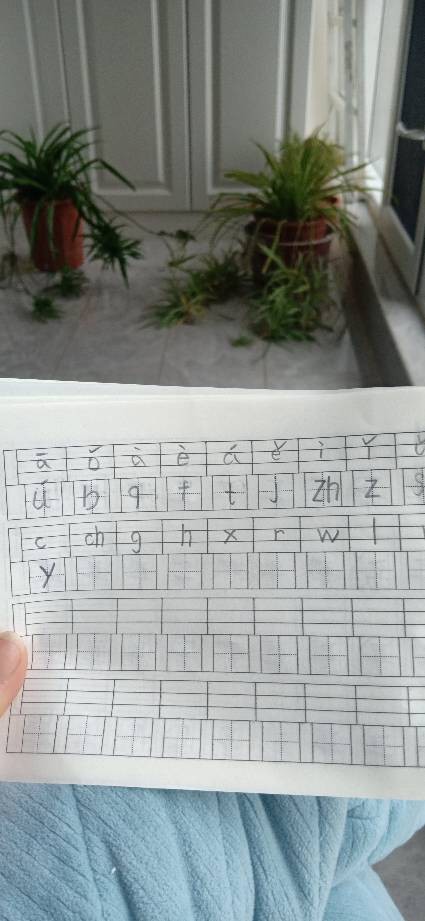 ā ǒ à è á ě ì ǐ
ú b q f t j zh z
c ch g h x r w l
y